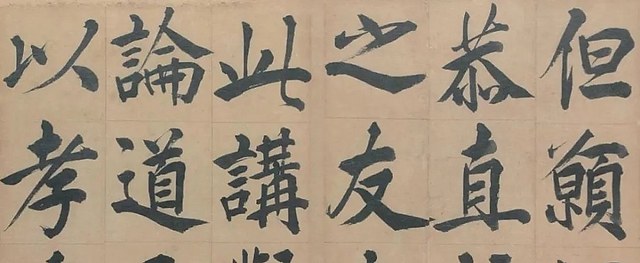 但願
恭直
之友
此講
論道
以孝